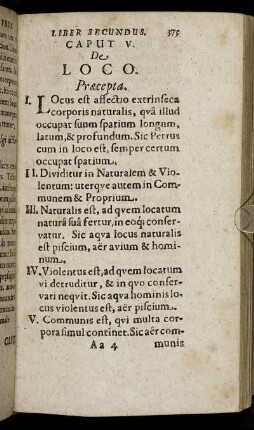 LIBER SECUNDUS. 375
CAPUT V.
De
LOCO.
Præcepta.
I. LOcus est affectio extrinseca
corporis naturalis, quâ illud
occupat suum spatium longum,
latum, & profundum. Sic Petrus
cum in loco est, semper certum
occupat spatium.
II. Dividitur in Naturalem & Vio-
lentum: uterqve autem in Com-
munem & Proprium.
III. Naturalis est, ad qvem locatum
naturâ suâ fertur, in eoqj conser-
vatur. Sic aqva locus naturalis
est piscium, aër avium & homi-
num.
IV. Violentus est, ad qvem locatum
vi detruditur, & in qvo conser-
vari neqvit. Sic aqva hominis lo-
cus violentus est, aër piscium.
V. Communis est, qvi multa cor-
pora simul continet. Sic aër com-
Aa 4 munis